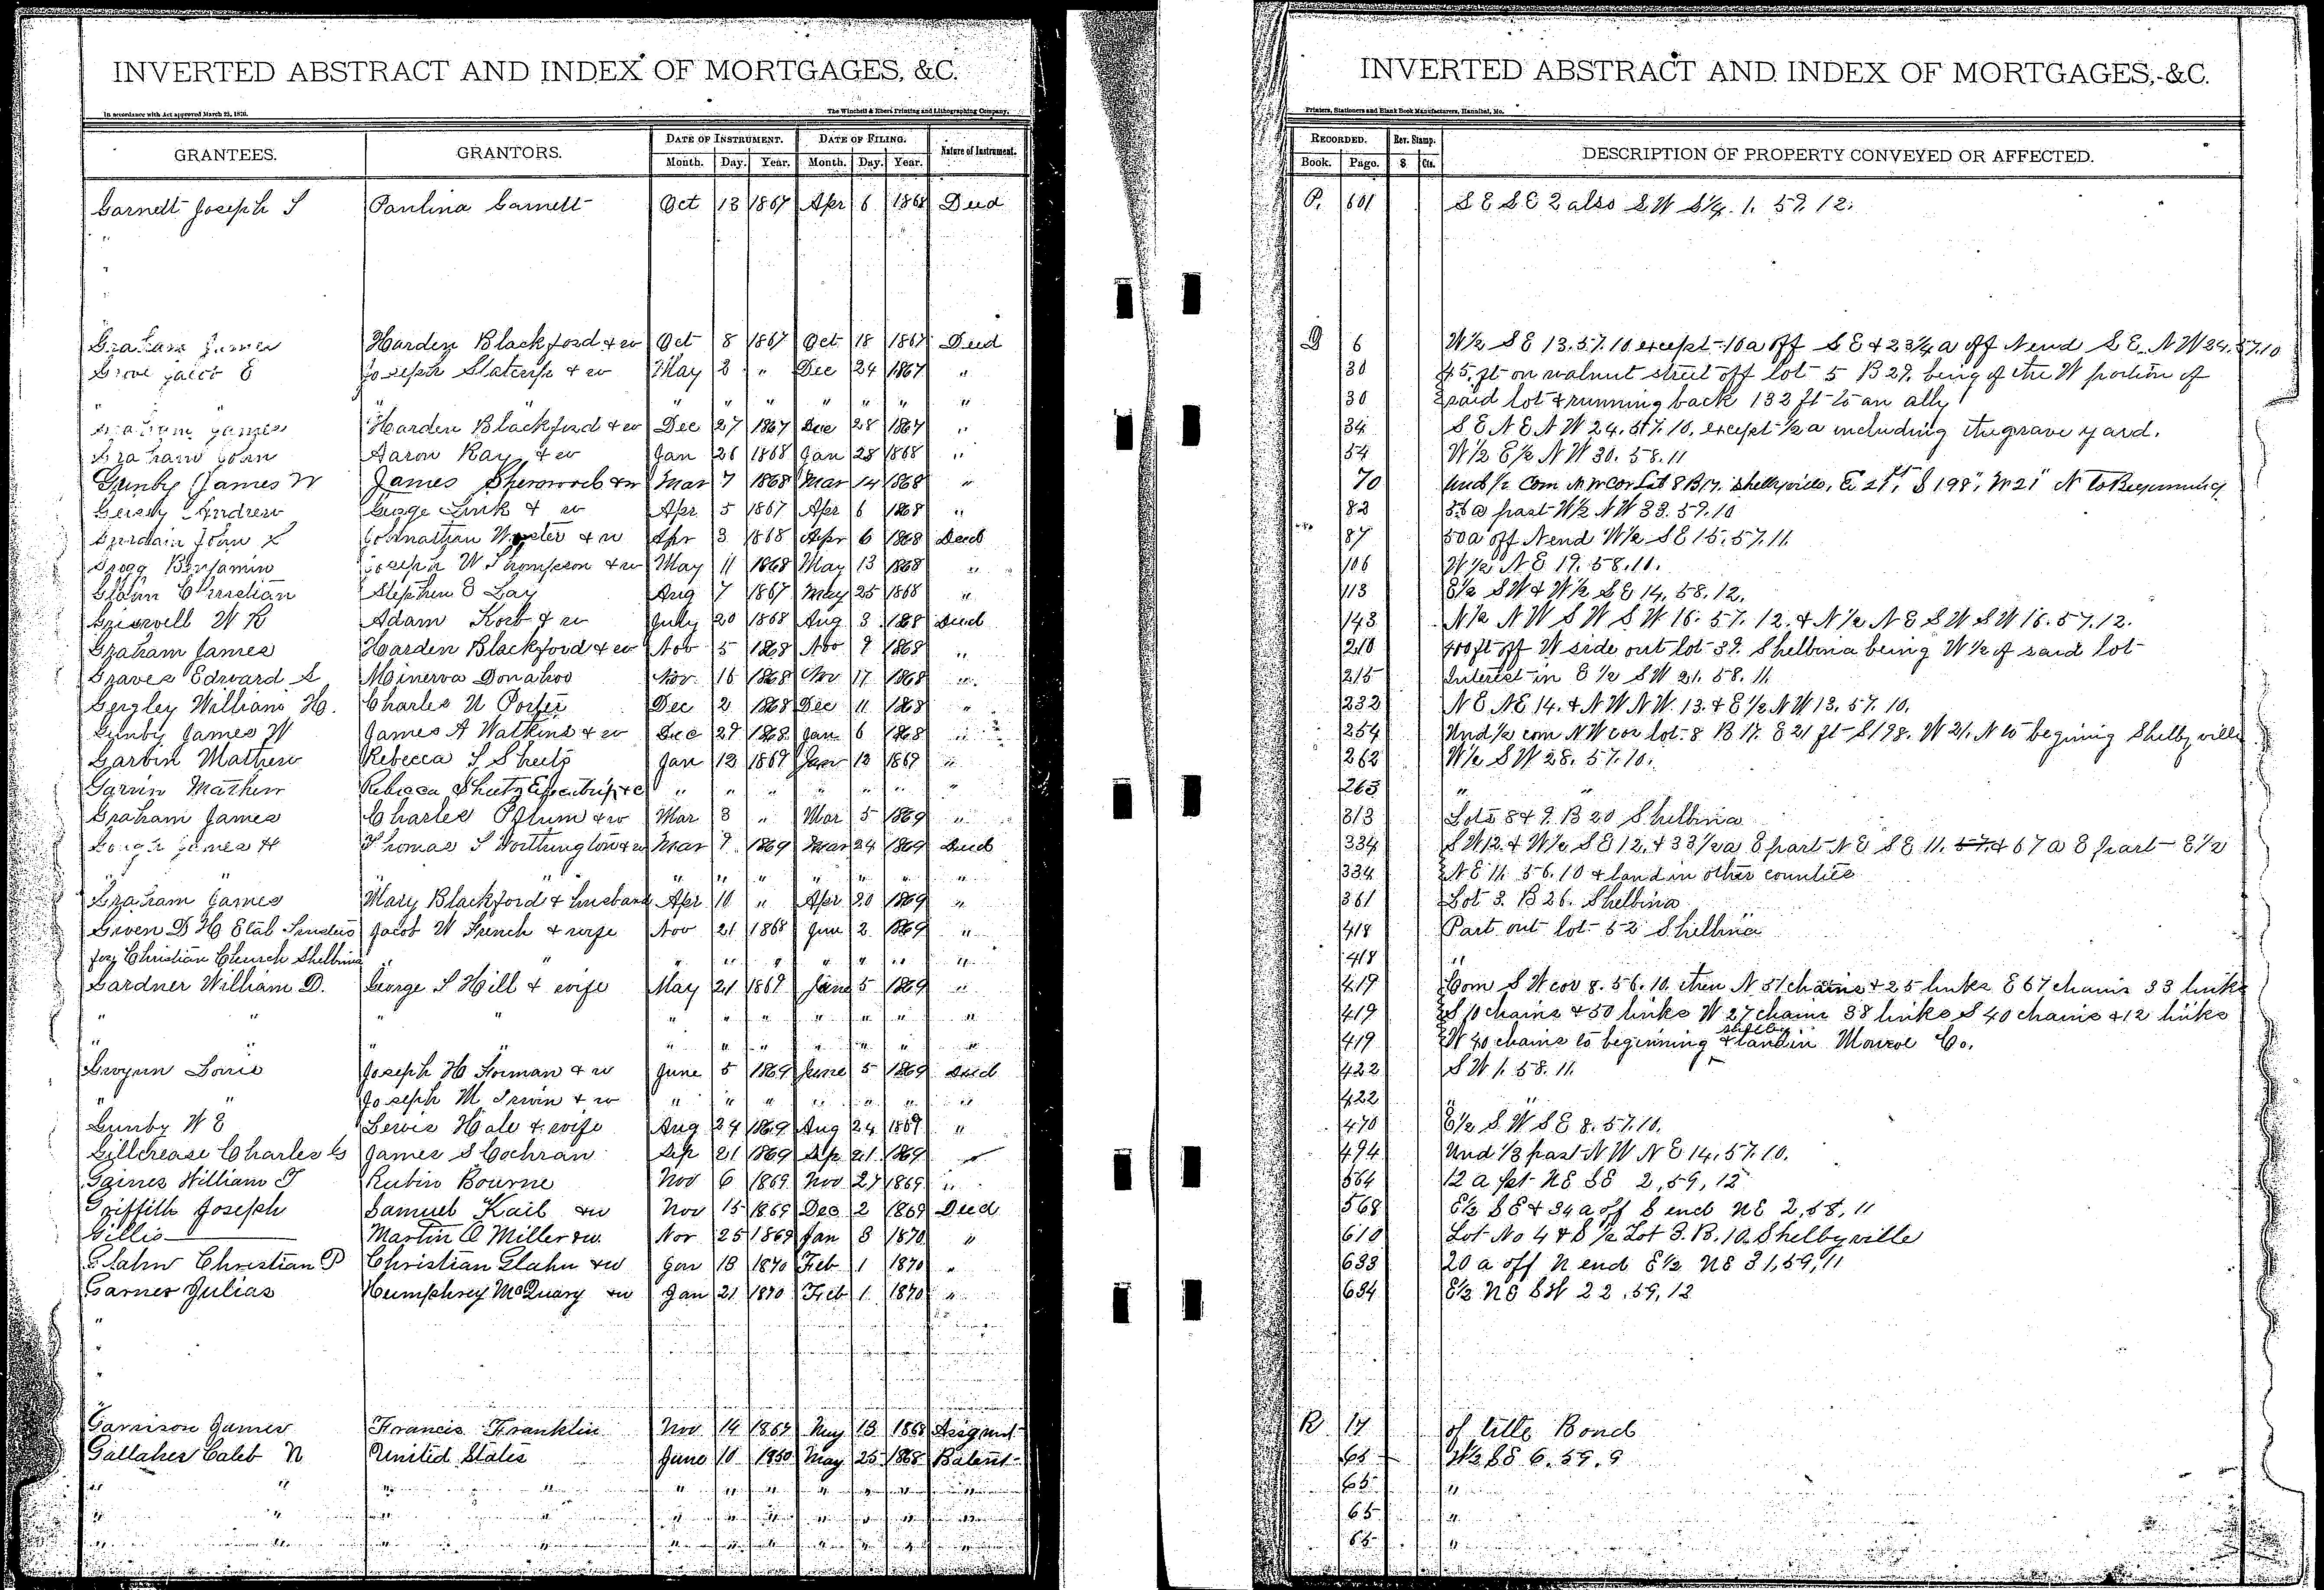 INVERTED ABSTRACT AND INDEX OF MORTGAGES, &C.
In accordance with Act approved March 25, 1870.
The Winchell & Ebert Printing and Lithographing Company,
GRANTEES. GRANTORS. DATE OF INSTRUMENT. DATE OF FILING. Nature of Instrument.
Month. Day. Year. Month. Day. Year.
Garnett Joseph S Paulina Garnett Oct 13 1867 Apr 6 1868 Deed
"
"
"
Graham James Harden Blackford & w Oct 8 1867 Oct 18 1867 Deed
Grove Joseph & w May 2 " Dec 24 1867 "
" " " " " " " " " "
Graham James Harden Blackford & w Dec 27 1867 Dec 28 1867 "
Graham John Aaron Ray & w Jan 26 1868 Jan 28 1868 "
Gunby James W James Sherwood & w Mar 7 1868 Mar 14 1868 "
Andrew George Link & w Apr 5 1867 Apr 6 1868 "
John Johnathan & w Apr 3 1868 Apr 6 1868 Deed
Grogg Benjamin Joseph W Thompson & w May 11 1868 May 13 1868 "
Glahn Christian Stephen E Lay Aug 7 1867 May 25 1868 "
Griswell W R Adam Korb & w July 20 1868 Aug 3 1868 Deed
Graham James Harden Blackford & w Nov 5 1868 Nov 9 1868 "
Graves Edward S Minerva Donahoo Nov 16 1868 Nov 17 1868 "
Gergley William H. Charles N Porter Dec 2 1868 Dec 11 1868 "
Gunby James W James A Watkins & w Dec 29 1868 Jan 6 1868 "
Garvin Mathew Rebecca S Sheets Jan 12 1869 Jan 12 1869 "
Garvin Mathew Rebecca Sheetz Executrix &c " " " " " " "
Graham James Charles Pflum & w Mar 3 " Mar 5 1869 "
Gough James H Thomas S Worthington & w Mar 9 1869 Mar 24 1869 Deed
" " " " " " " " "
Graham James Mary Blackford & husband Apr 10 " Apr 20 1869 "
Given D H Etal Trustees Jacob W French & wife Nov 21 1868 Jun 2 1869 "
for Christian Church Shelbina " " " " " " " "
Gardner William D. George S Hill & wife May 21 1869 June 5 1869 "
" " " " " " " " " " "
" " " " " " " " " " "
Gwynn Louis Joseph H Forman & w June 5 1869 June 5 1869 Deed
" " Joseph M Irwin & w " " " " " " "
Gunby W E Lewis Hale & wife Aug 24 1869 Aug 24 1869 "
Gillcrease Charles G James S Cochran Sep 21 1869 Sep 21 1869 "
Gaines William T Rubin Bourne Nov 6 1869 Nov 27 1869 "
Griffith Joseph Samuel Kail & w Nov 15 1869 Dec 2 1869 Deed
Gillis Martin O Miller & w. Nov 25 1869 Jan 3 1870 "
Glahn Christian P Christian Glahn & w Jan 13 1870 Feb 1 1870 "
Garner Julias Humphrey McQuary & w Jan 21 1870 Feb 1 1870 "
"
"
"
"
Garrison James Francis Franklin Nov 14 1867 May 13 1868 Assignmt
Gallaher Caleb N United States June 10 1850 May 25 1868 Patent
" " " " " " " " " " "
" " " " " " " " " " "
" " " " " " " " " " "
INVERTED ABSTRACT AND INDEX OF MORTGAGES, &C.
Printers, Stationers and Blank Book Manufacturers, Hannibal, Mo.
RECORDED. Rev. Stamp. DESCRIPTION OF PROPERTY CONVEYED OR AFFECTED.
Book. Page. $ Cts.
P. 601 S E S E 2 also S W S ¼. 1. 59. 12.
Q 6 W½ S E 13. 57. 10 except 10 a off S E & 23¼ a off N end S E N W 24. 57. 10
30 45 ft on walnut street off lot 5 B 29. being of the W portion of
30 said lot & running back 132 ft to an ally
34 S E N E N W 24. 57. 10. except ½ a including the grave yard.
54 W½ E½ N W 30. 58. 11
70 Und ½ Com N W Cor Lot 8 B 17. Shelbyville, E 21 ft, S 198", W 21" N to Beginning
82 55 a part W½ N W 33. 59. 10
87 50 a off N end W½ S E 15. 57. 11.
106 W½ N E 19. 58. 10.
113 E½ S W & W½ S E 14. 58. 12.
143 N½ N W S W S W 16. 57. 12. & N½ N E S W S W 16. 57. 12.
210 400 ft off W side out lot 39. Shelbina being W½ of said lot
215 Interest in E½ S W 21. 58. 11
232 N E N E 14. & N W N W. 13. & E½ N W 13. 57. 10.
254 Und ½ com N W cor lot 8 B 17. E 21 ft S 198. W 21. N to begining Shelbyville
262 W½ S W 28. 57. 10.
263 " "
313 Lots 8 & 9. B 20 Shelbina
334 S W 12. & W½ S E 12. & 33½ a E part N E S E 11. 57. & 67 a E part E½
334 N E 11. 56. 10 & land in other counties
361 Lot 3. B 26. Shelbina
418 Part out lot 52 Shelbina
418 "
419 Com S W cor 8. 56. 10. then N 51 chains & 25 links E 67 chains 33 links
419 S 10 chains & 50 links W 27 chains 38 links S 40 chains & 12 links
419 W 40 chains to beginning Shelby & land in Monroe Co.
422 S W 1. 58. 11.
422 " "
470 E½ S W S E 8. 57. 10.
494 Und ⅓ part N W N E 14. 57. 10.
564 12 a pt N E S E 2, 59, 12
568 E½ S E & 34 a off S end N E 2, 58, 11
610 Lot No 4 & S½ Lot 3. B. 10. Shelbyville
633 20 a off N end E½ N E 31, 59, 11
634 E½ N E S W 22, 59, 12
R 17 of title Bond
65 W½ S E 6. 59. 9
65 "
65 "
65 "